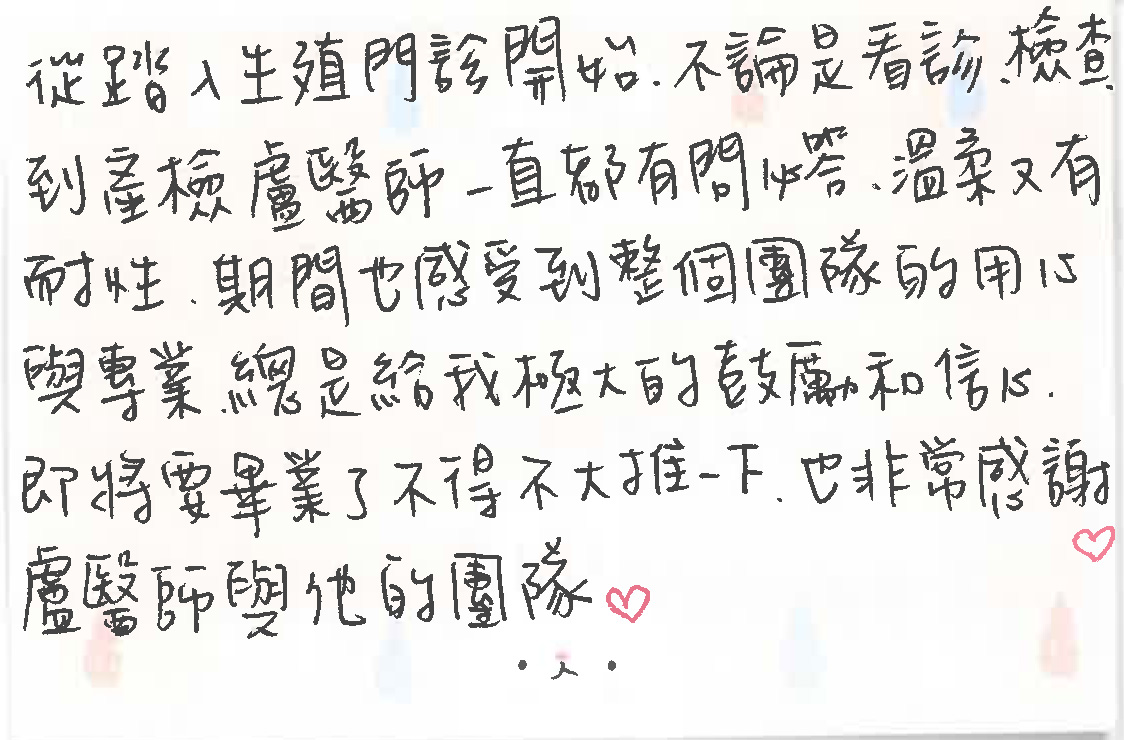 從踏入生殖門診開始.不論是看診.檢查.
到產檢盧醫師一直都有問必答.溫柔又有
耐性.期間也感受到整個團隊的用心
與專業.總是給我極大的鼓勵和信心.
即將要畢業了不得不大推一下.也非常感謝
盧醫師與他的團隊♡